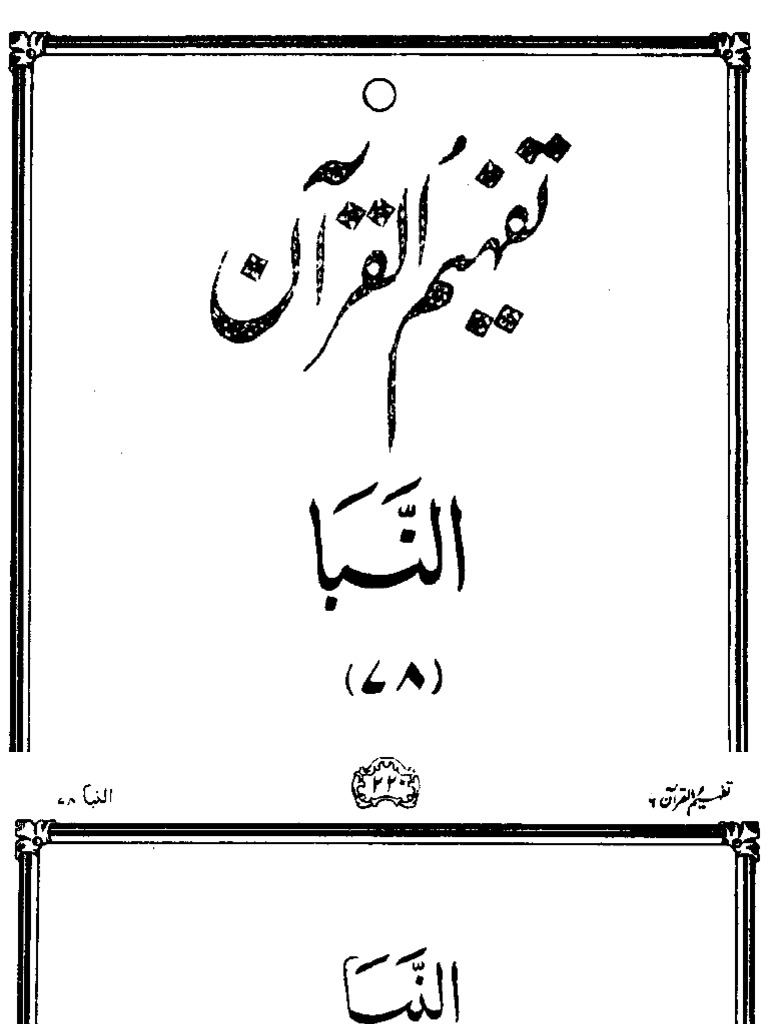 تفہیمُ القرآن
النَّبَا
(۷۸)
تفہیم القرآن ۶
۲۲۰
النبا ۷۸
النَّبَا